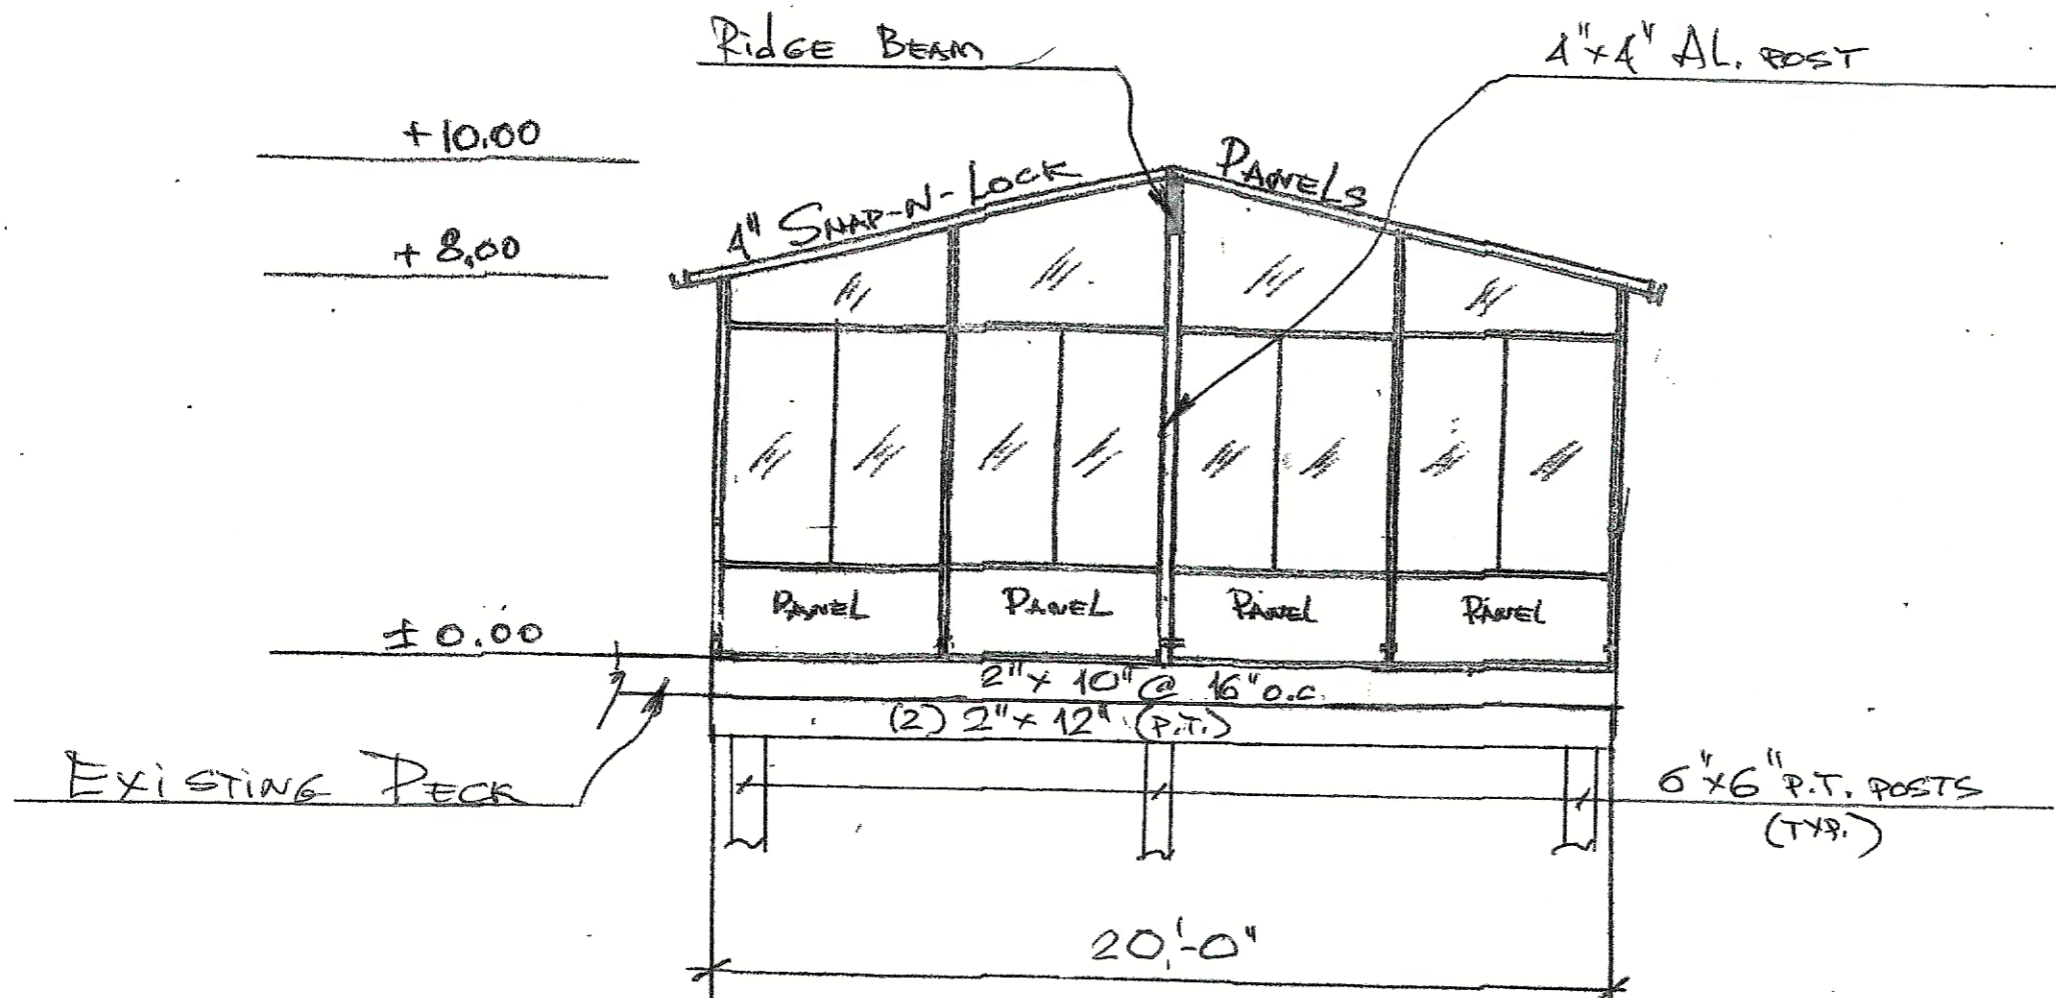 Ridge Beam
4"x4" AL. POST
+10.00
4" SNAP-N-LOCK PANELS
+8.00
PANEL PANEL PANEL PANEL
±0.00
2"x 10" @ 16" o.c.
(2) 2"x 12" (P.T.)
EXISTING DECK
6"x6" P.T. POSTS
(TYP.)
20'-0"